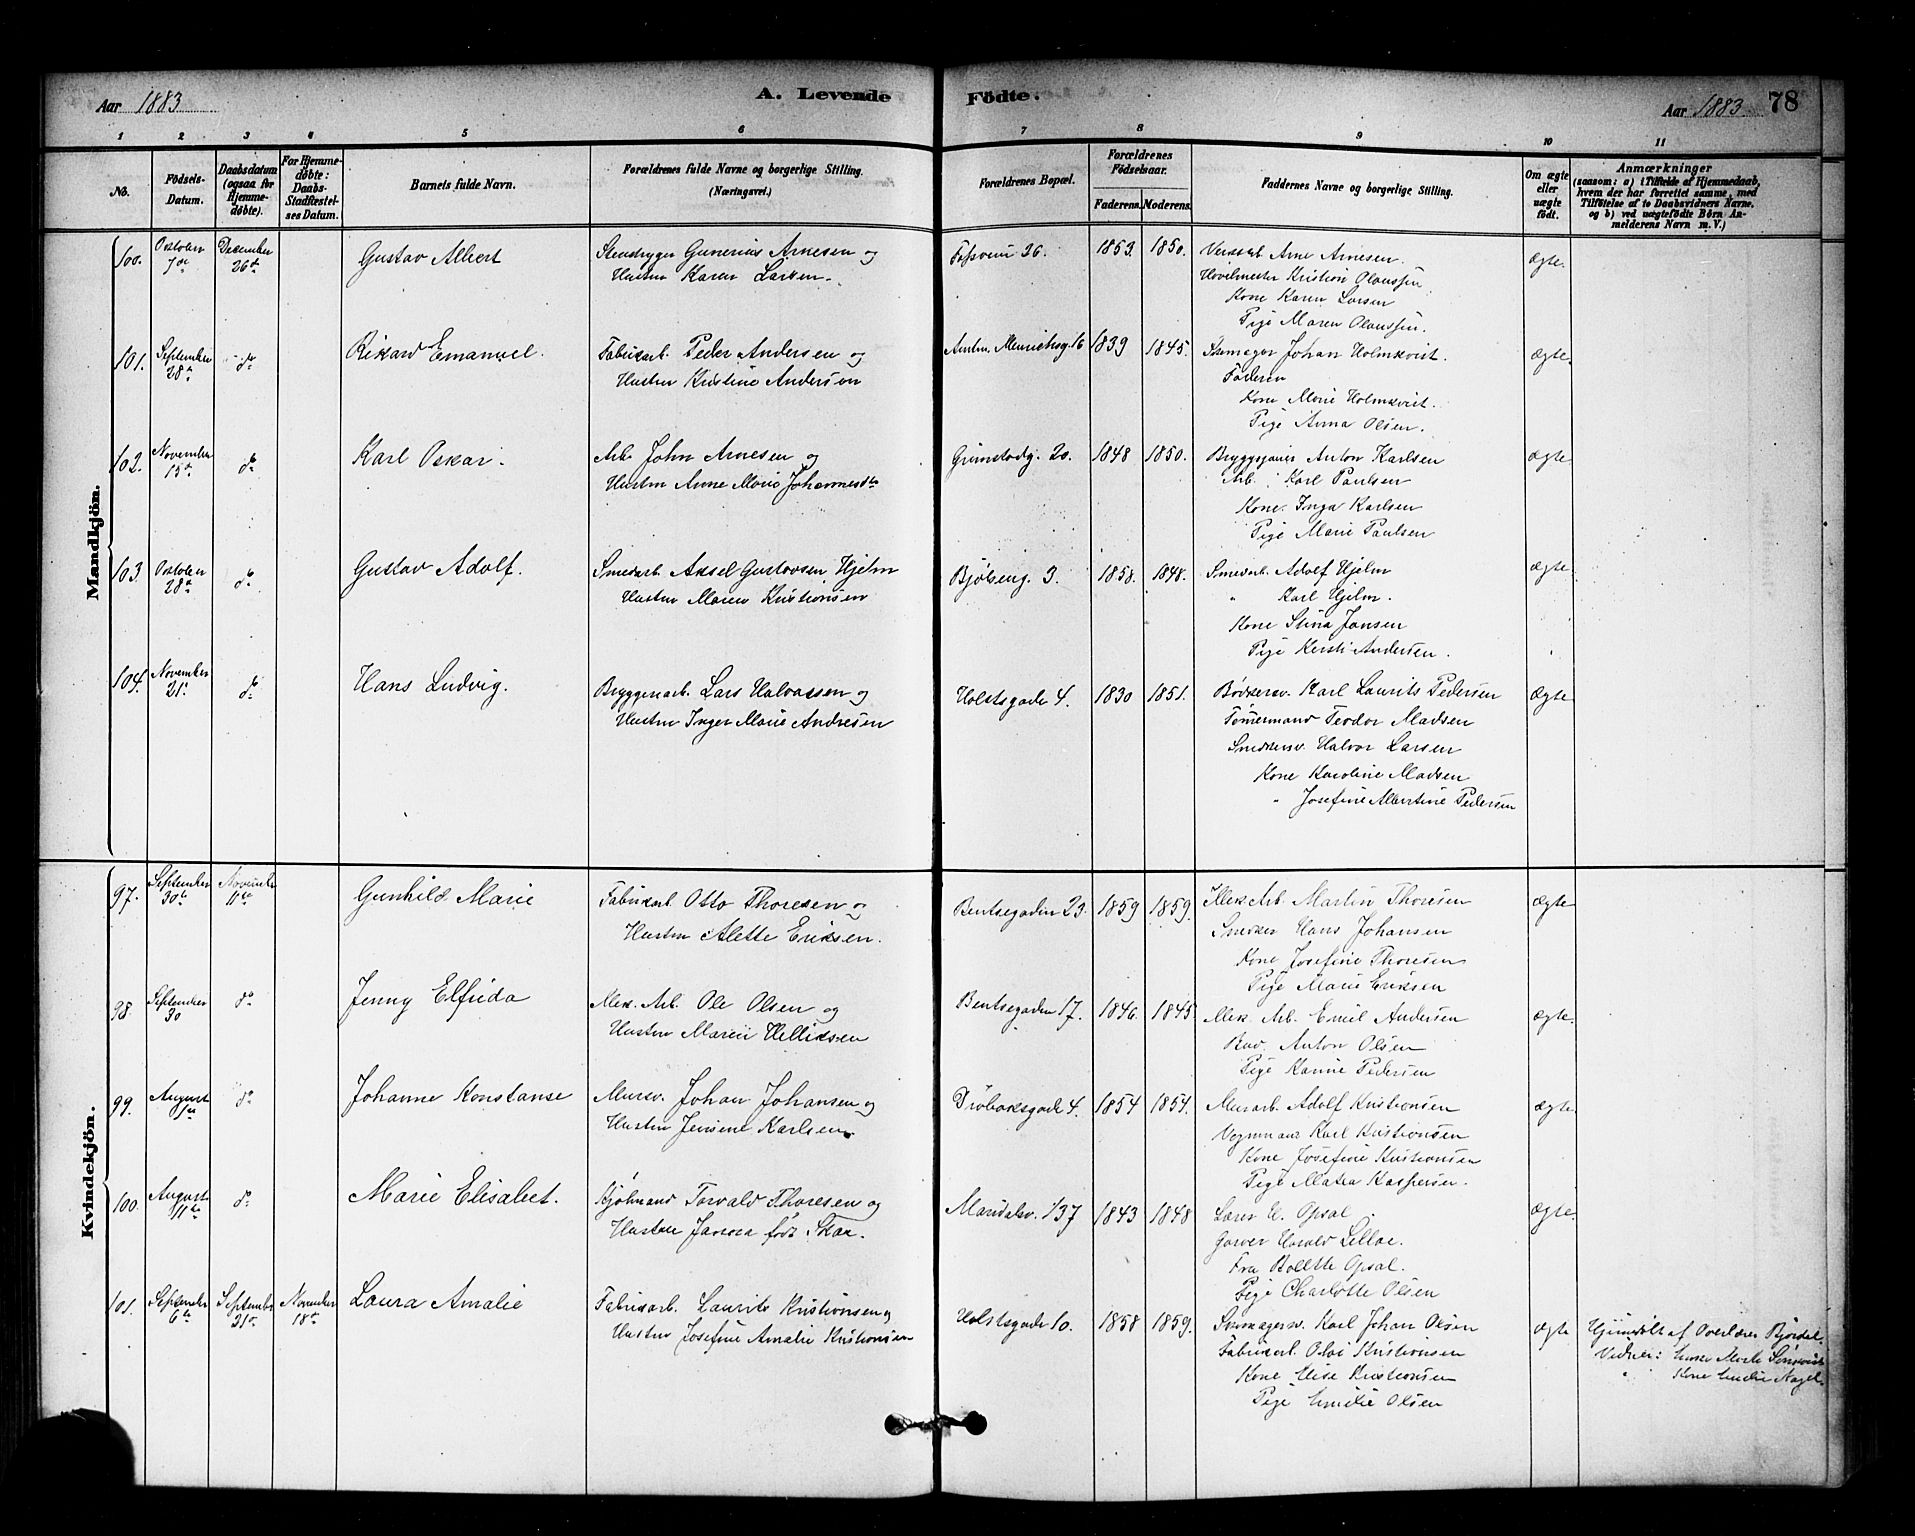 Aar 1883
A. Levende
Födte.
Aar 1883
78
1 2 3 4 5 6 7 8 9 10 11
No.
Födsels-
Datum.
Daabsdatum
(ogsaa for
Hjemme-
døbte).
For Hjemme-
døbte:
Daabs-
Stadfæstel-
ses Datum.
Barnets fulde Navn.
Forældrenes fulde Navne og borgerlige Stilling.
(Næringsvei.)
Forældrenes Bopæl.
Forældrenes
Födselsaar.
Faderens. Moderens.
Faddernes Navne og borgerlige Stilling.
Om ægte
eller
uægte
født.
Anmærkninger
(saasom: a) i Tilfælde af Hjemmedaab,
hvem der har forrettet samme, med
Tilföielse af to Daabsvidners Navne,
og b) ved uægtefödte Börn An-
melderens Navn m. V.)
Mandkjön.
100.
Oktober
7de
December
26de
Gustav Albert
Gunerius Arnesen og
Hustru Karen Larsen
Fossvein 26.
1853. 1850.
Arne Arnesen.
Kristian Olaussen
Kone Karen Larsen
Pige Maren Olaussen.
ægte.
101.
September
28de
do
Rikard Emanuel.
Fabrikarb. Peder Andersen og
Hustru Kristine Andersen
16
1839 1845.
Skomager Johan Holmkvist.
Faderen
Kone Marie Holmkvist.
Pige Anna Olsen.
ægte.
102.
November
15de
do
Karl Oskar.
Arb. John Arnesen og
Hustru Anne Marie Johannesdtr
Grimstadg. 20.
1848 1850.
Anton Karlsen
Arb. Karl Paulsen
Kone Inga Karlsen
Pige Marie Paulsen
ægte
103.
Oktober
28de
do
Gustav Adolf.
Smedarb. Aksel Gustavsen Hjelm
Hustru Maren Kristiansen
Bjölseng. 3.
1858. 1848.
Smedarb. Adolf Hjelm
" Karl Hjelm.
Kone Stina Jansen
Pige Kersti Andersen.
ægte
104.
November
21.
do
Hans Ludvig.
Bryggeriarb. Lars Halvorsen og
Hustru Inger Marie Andresen
Holstsgade 4.
1830 1851.
Bødkersv. Karl Laurits Pedersen
Tømermand Teodor Madsen
Snedkersv. Halvor Larsen
Kone Karoline Madsen
" Josefine Albertine Pedersen
ægte
Kvindekjön.
97.
September
30te
November
11te
Gunhild Marie
Fabrikarb. Otto Thoresen og
Hustru Alette Eriksen.
Bentsegaden 23.
1859 1859.
Mek. Arb. Martin Thoresen
Snedker Hans Johansen
Kone Josefine Thoresen
Pige Marie Eriksen
ægte
98.
September
30
do
Jenny Elfrida
Mek. Arb. Ole Olsen og
Hustru Maren Helliksen
Bentsegaden 17.
1846. 1845
Mek. Arb. Emil Andersen
Anton Olsen
Pige Pedersen
ægte.
99.
August
1ste
do
Johanne Konstanse
Mursv. Johan Johansen og
Hustru Jensine Karlsen.
Dröbaksgade 4.
1854 1854.
Murarb. Adolf Kristiansen
Vognmand Karl Kristiansen
Kone Josefine Kristiansen
Pige Matea Kaspersen.
ægte
100.
August
11te
do
Marie Elisabet.
Kjøbmand Torvald Thoresen og
Hustru født Skar.
Maridalsv. 137
1843 1848
Lærer E. Opsal
Garver Harald Lilloe.
Fru Bollette Opsal.
Pige Charlotte Olsen
ægte.
101.
September
6te
September
21de
November
18de
Laura Amalie
Fabrikarb. Laurits Kristiansen og
Hustru Josefine Amalie Kristiansen
Holstsgade 10.
1858 1859.
Skomagersv. Karl Johan Olsen
Fabrikarb. Olai Kristiansen
Kone Elise Kristiansen
Pige Emilie Olsen
ægte
Hjemdöbt af Overlærer Bjørdal.
Vidner:
" Kone Emilie Nagel.